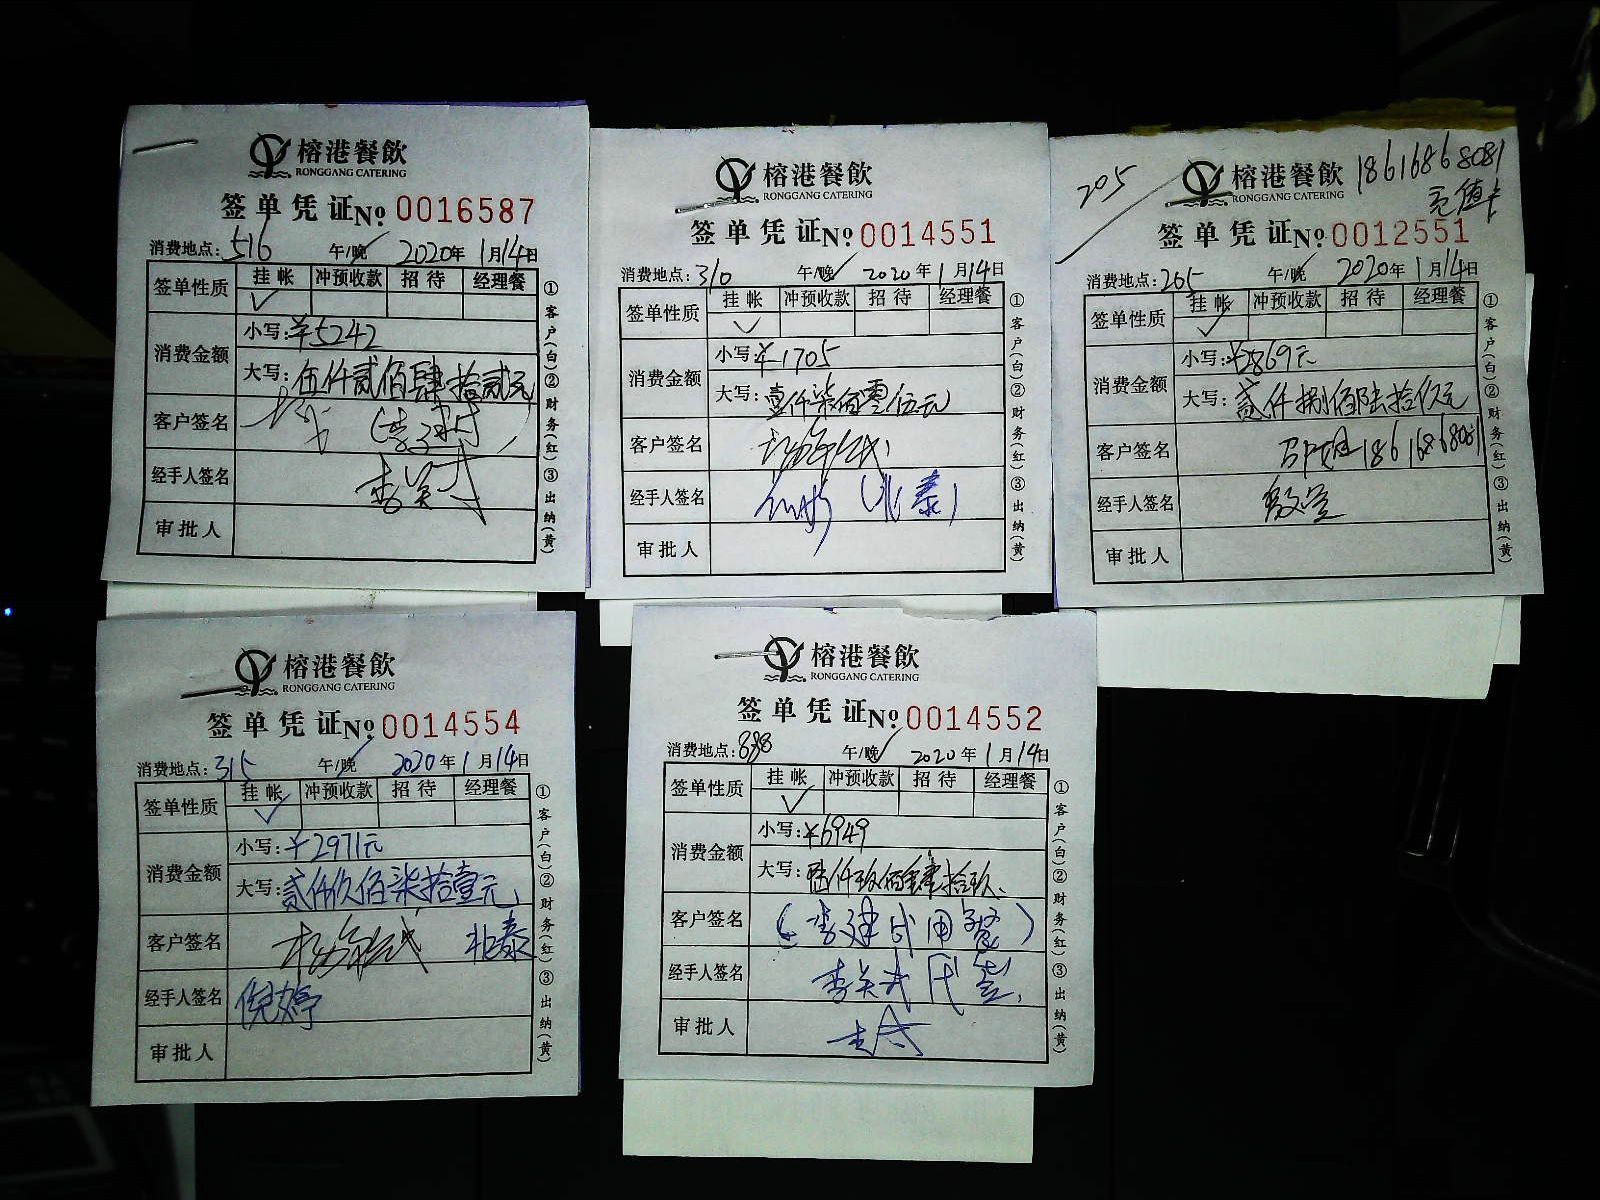 榕港餐飲
RONGGANG CATERING
签单凭证 №0016587
消费地点: 516 午/晚 2020年1月14日
签单性质 挂帐 冲预收款 招待 经理餐
消费金额 小写: ¥5242
大写: 伍仟贰佰肆拾贰元
客户签名
经手人签名
审批人
①客户(白)②财务(红)③出纳(黄)
榕港餐飲
RONGGANG CATERING
签单凭证 №0014551
消费地点: 310 午/晚 2020年1月14日
签单性质 挂帐 冲预收款 招待 经理餐
消费金额 小写: ¥1705
大写: 壹仟柒佰零伍元
客户签名
经手人签名 (北泰)
审批人
①客户(白)②财务(红)③出纳(黄)
205
18616868081
充值卡
榕港餐飲
RONGGANG CATERING
签单凭证 №0012551
消费地点: 265 午/晚 2020年1月14日
签单性质 挂帐 冲预收款 招待 经理餐
消费金额 小写: ¥2869元
大写: 贰仟捌佰陆拾玖元
客户签名 18616868081
经手人签名
审批人
①客户(白)②财务(红)③出纳(黄)
榕港餐飲
RONGGANG CATERING
签单凭证 №0014554
消费地点: 315 午/晚 2020年1月14日
签单性质 挂帐 冲预收款 招待 经理餐
消费金额 小写: ¥2971元
大写: 贰仟玖佰柒拾壹元
客户签名 北泰
经手人签名 倪婷
审批人
①客户(白)②财务(红)③出纳(黄)
榕港餐飲
RONGGANG CATERING
签单凭证 №0014552
消费地点: 888 午/晚 2020年1月14日
签单性质 挂帐 冲预收款 招待 经理餐
消费金额 小写: ¥6949
大写: 陆仟玖佰肆拾玖
客户签名 (李建成用餐)
经手人签名
审批人
①客户(白)②财务(红)③出纳(黄)